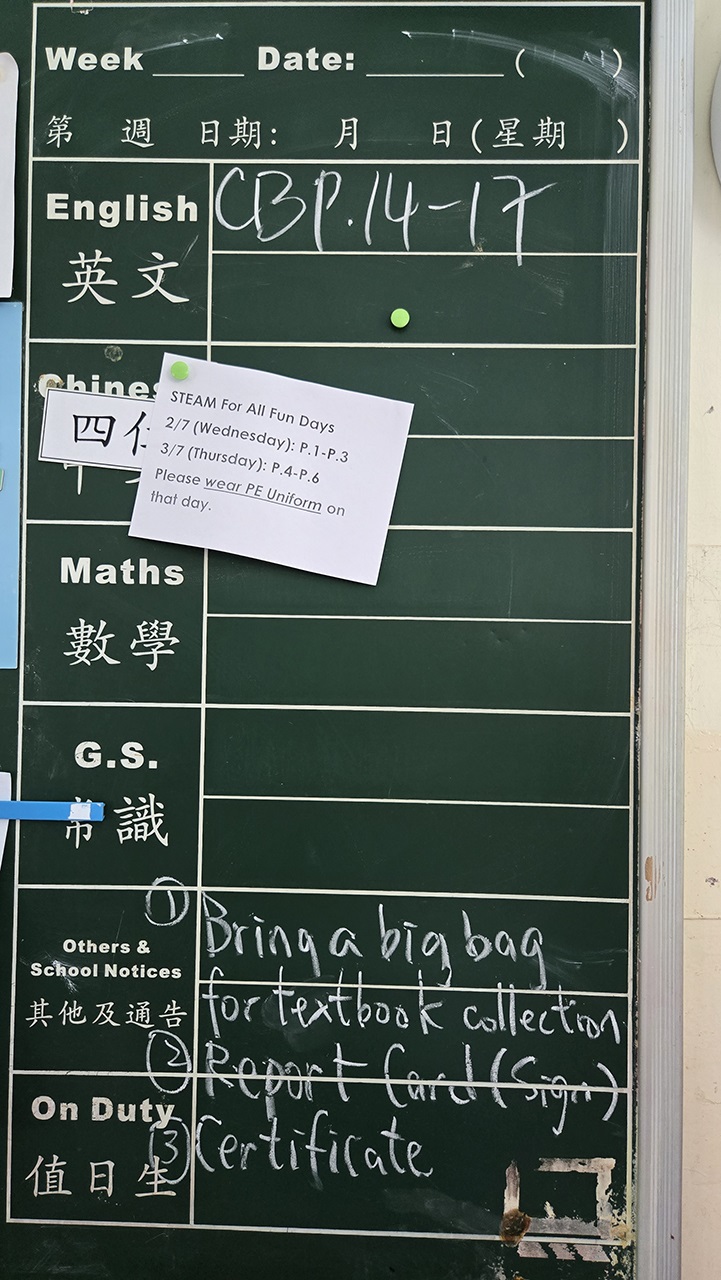 Week ____ Date: ______ ( )
第 週 日期: 月 日(星期 )
English
英文
CBP.14-17
Chines
四
STEAM For All Fun Days
2/7 (Wednesday): P.1-P.3
3/7 (Thursday): P.4-P.6
Please wear PE Uniform on
that day.
Maths
數學
G.S.
常識
Others &
School Notices
其他及通告
① Bring a big bag
for textbook collection
② Report Card (Sign)
On Duty
值日生
③ Certificate